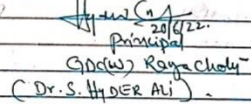 20/6/22.
Principal
GDC(W) Rayachoty
(Dr. S. HYDER ALI).